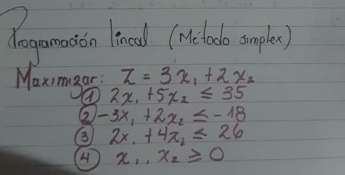 Programación lineal. (Método simplex)
Maximizar: Z = 3x₁ + 2x₂
① 2x₁ + 5x₂ ≤ 35
② -3x₁ + 2x₂ ≤ -18
③ 2x₁ + 4x₂ ≤ 26
④ x₁, x₂ ≥ 0